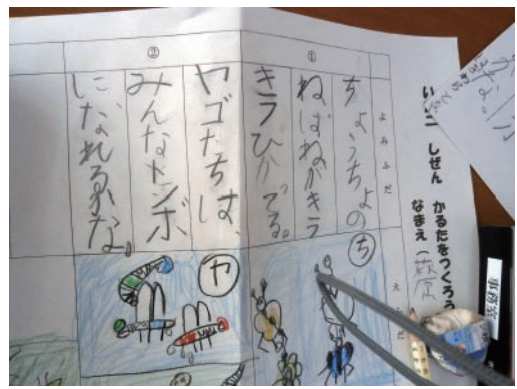 しぜん かるたをつくろう
なまえ(萩原
よみふだ
①
ちょうちょの
はねがキラ
キラひかってる。
②
ヤゴたちは、
みんなトンボ
に、なれるかな。
ち
ヤ